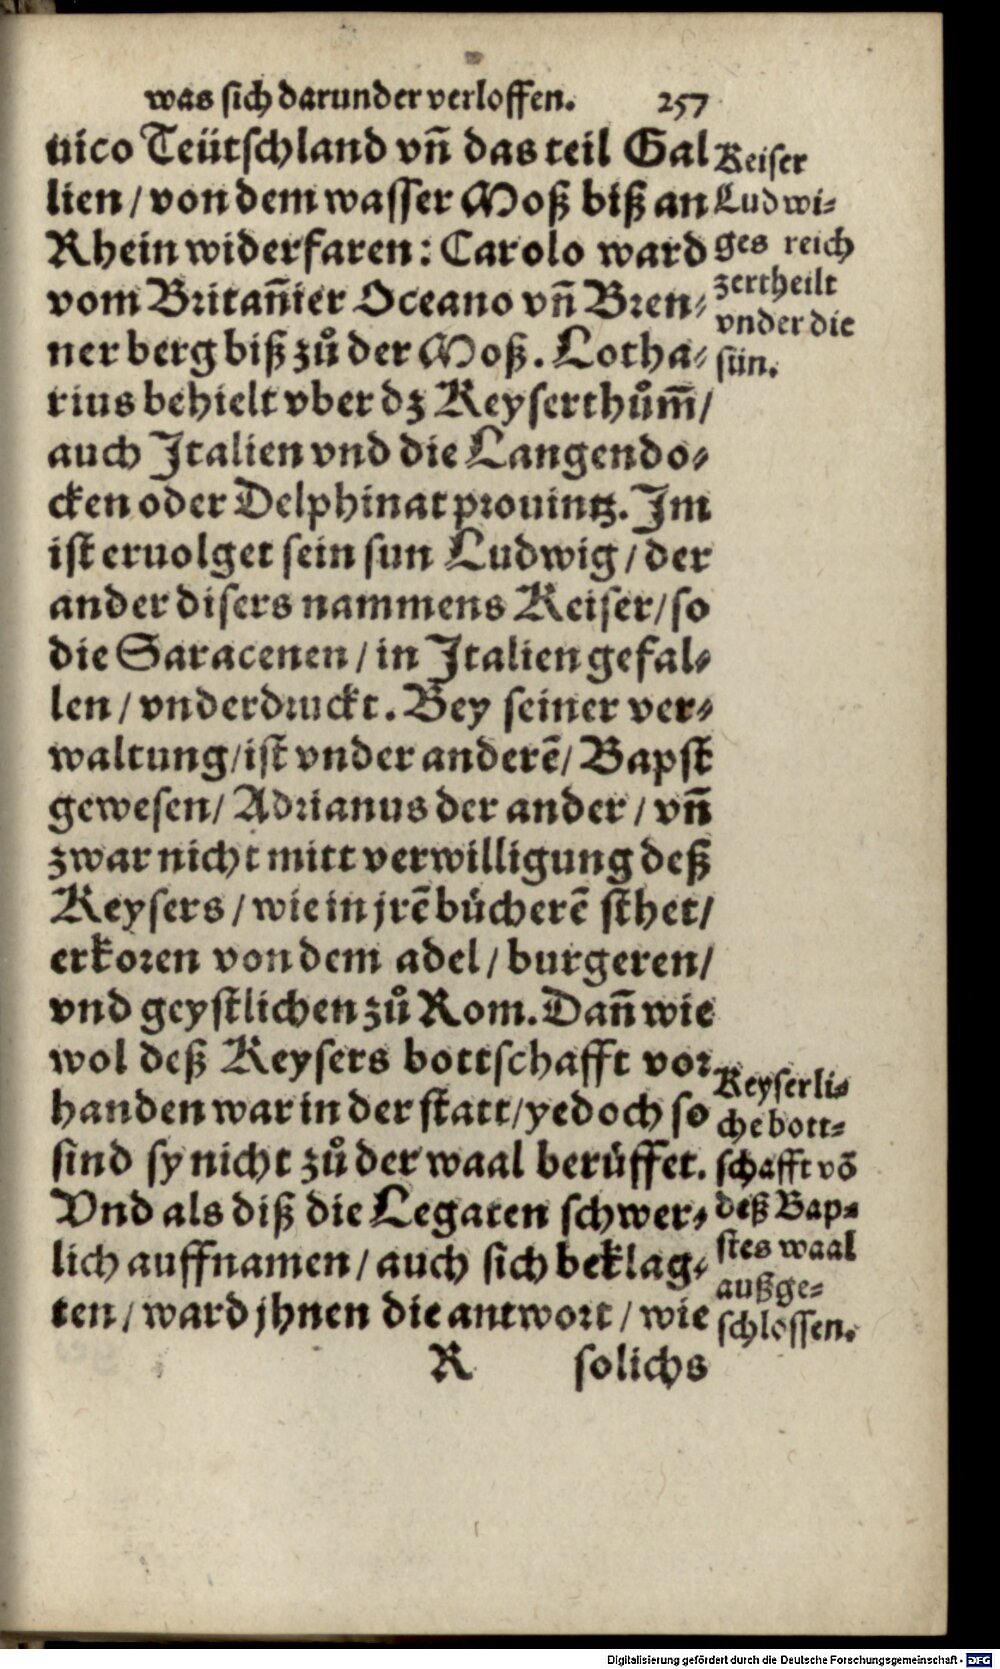 was sich darunder verloffen. 257
uico Teütschland vn̄ das teil Gal
lien / von dem wasser Moß biß an
Rhein widerfaren: Carolo ward
vom Britan̄ier Oceano vn̄ Bren⸗
ner berg biß zů der Moß. Lotha⸗
rius behielt vber dz Keyserthům̄/
auch Italien vnd die Langendo⸗
cken oder Delphinat prouintz. Im
ist eruolget sein sun Ludwig / der
ander disers nammens Keiser / so
die Saracenen / in Italien gefal⸗
len / vnderdruckt. Bey seiner ver⸗
waltung / ist vnder anderē / Bapst
gewesen / Adrianus der ander / vn̄
zwar nicht mitt verwilligung deß
Keysers / wie in jrē bücherē sthet /
erkoren von dem adel / burgeren /
vnd geystlichen zů Rom. Dan̄ wie
wol deß Keysers bottschafft vor
handen war in der statt / yedoch so
sind sy nicht zů der waal berüffet.
Vnd als diß die Legaten schwer⸗
lich auffnamen / auch sich beklag⸗
ten / ward jhnen die antwort / wie
R solichs
Keiser
Ludwi⸗
ges reich
zertheilt
vnder die
sün.
Keyserli⸗
che bott⸗
schafft vō
deß Bap⸗
stes waal
außge⸗
schlossen.
Digitalisierung gefördert durch die Deutsche Forschungsgemeinschaft - DFG